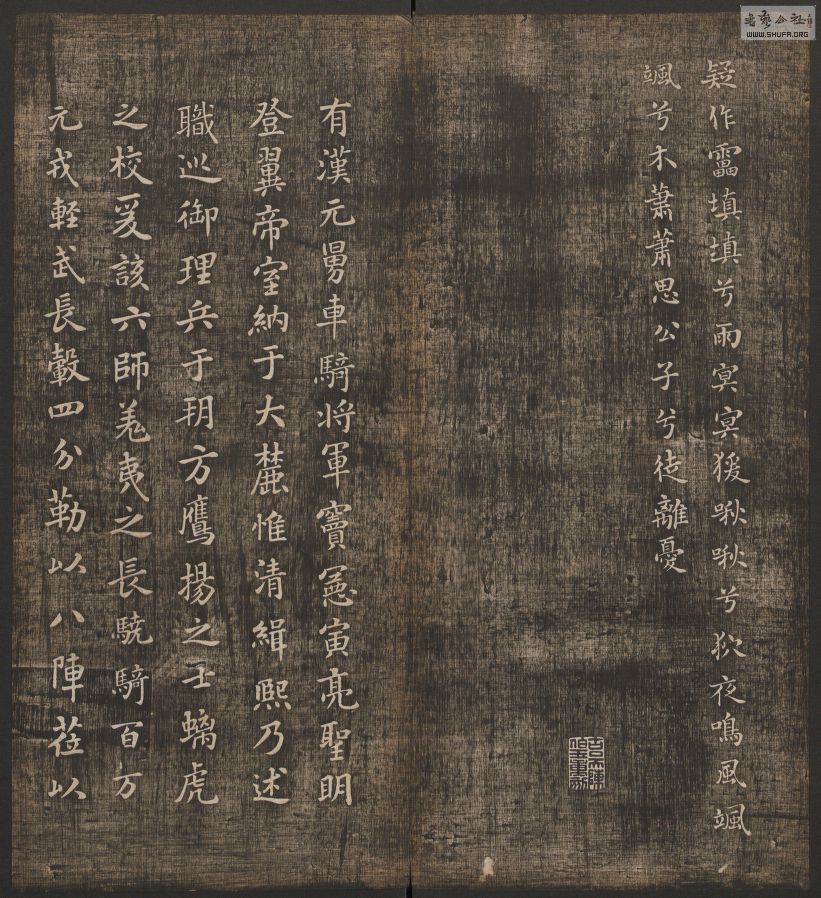 疑作靁填填兮雨冥冥猨啾啾兮狖夜鳴風颯
颯兮木蕭蕭思公子兮徒離憂
有漢元舅車騎將軍竇憲寅亮聖明
登翼帝室納于大麓惟清緝熙乃述
職巡御理兵于朔方鷹揚之士螭虎
之校爰該六師羌夷之長驍騎百万
元戎軽武長轂四分勒以八陣莅以
書藝公社
WWW.SHUFA.ORG